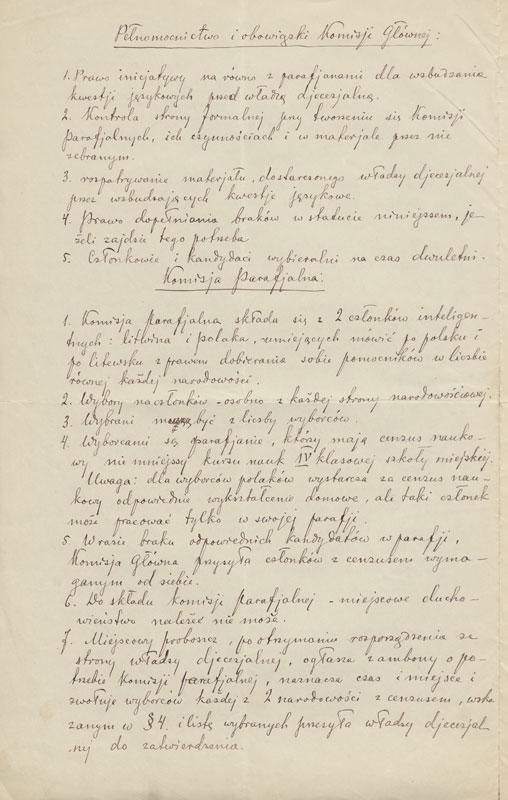 Pełnomocnictwo i obowiązki Komisji Głównej:
1. Prawo inicjatywy na równo z parafjanami dla wzbudzania
kwestji językowych przed władzą djecezjalną.
2. Kontrola strony formalnej przy tworzeniu się Komisji
Parafjalnych, ich czynnościach i w materjale przez nie
zebranym.
3. rozpatrywanie materjału, dostarczonego władzy djecezjalnej
przez wzbudzających kwestje językowe.
4. Prawo dopełniania braków w statucie niniejszem, je
żeli zajdzie tego potrzeba
5. Członkowie i kandydaci wybieralni na czas dwuletni.
Komisja Parafjalna.
1. Komisja Parafjalna składa się z 2 członków inteligen-
tnych: litwina i polaka, umiejących mówić po polsku i
po litewsku z prawem dobierania sobie pomocników w liczbie
równej każdej narodowości.
2. Wybory na członków - osobno z każdej strony narodowościowej.
3. Wybrani muszą być z liczby wyborców.
4. Wyborcami są parafjanie, którzy mają cenzus nauko-
wy nie mniejszy kursu nauk IV klasowej szkoły miejskiej.
Uwaga: dla wyborców polaków wystarcza za cenzus nau-
kowy odpowiednie wykształcenie domowe, ale taki członek
może pracować tylko w swojej parafji.
5. W razie braku odpowiednich kandydatów w parafji,
Komisja Główna przysyła członków z cenzusem wyma-
ganym od siebie.
6. Do składu Komisji Parafjalnej - miejscowe ducho-
wieństwo należeć nie może.
7. Miejscowy proboszcz, po otrzymaniu rozporządzenia ze
strony władzy djecezjalnej, ogłasza z ambony o po-
trzebie Komisji parafjalnej, naznacza czas i miejsce i
zwołuje wyborców każdej z 2 narodowości z cenzusem, wska
zanym w § 4. i listę wybranych przesyła władzy djecezjal
nej do zatwierdzenia.